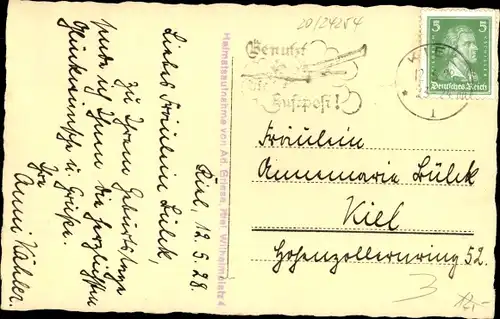 20/24254
Kiel, 12.5.28.
Liebes Fräulein Lülck,
Zu Ihrem Geburtstage
sende ich Ihnen die herzlichsten
Glückwünsche u. Grüße.
Ihre
Anni Kähler.
Heimataufnahme von Ad. Giese, Kiel, Wilhelminenstr. 4
Benutzt
die
Luftpost!
KIEL
1
5 5
Deutsches Reich
Fräulein
Annemarie Lülck
Kiel
Hohenzollernring 52.
3
12,-